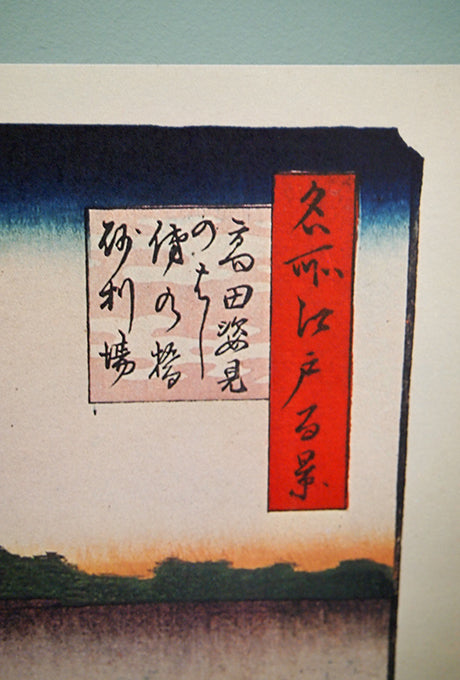 名所江戸百景
高田姿見
のはし
俤の橋
砂利場